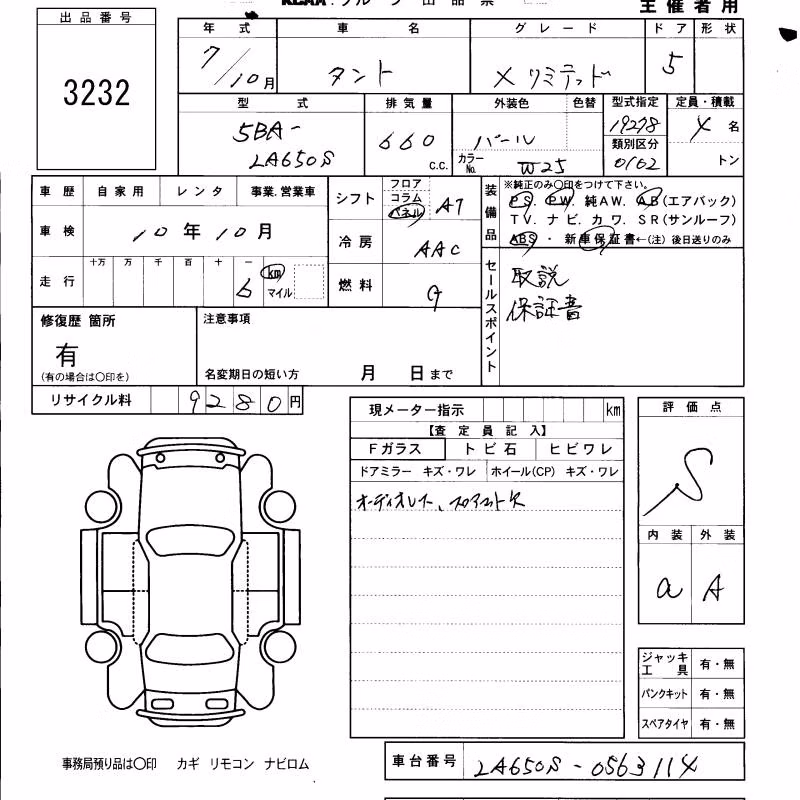 出品番号
3232
主催者用
年式 車名 グレード ドア 形状
7/10月 タント X リミテッド 5
型式 排気量 外装色 色替 型式指定 定員・積載
5BA- 660 パール 19278 4 名
類別区分
LA650S c.c. カラーNo. W25 0162 トン
車歴 自家用 レンタ 事業.営業車
シフト フロア コラム パネル AT
装備品 ※純正のみ○印をつけて下さい。
PS. PW. 純AW. AB(エアバック)
TV. ナビ. カワ. SR(サンルーフ)
ABS ・ 新車保証書←(注) 後日送りのみ
車検 10年10月
冷房 AAC
走行 十万 万 千 百 十 一
6 km マイル
燃料 G
セールスポイント 取説
保証書
修復歴 箇所
有
(有の場合は○印を)
注意事項
名変期日の短い方 月 日まで
リサイクル料 9280円
現メーター指示 km
【査定員記入】
Fガラス トビ石 ヒビワレ
ドアミラー キズ・ワレ ホイール(CP) キズ・ワレ
オーディオレス、
評価点
S
内装 外装
a A
ジャッキ工具 有・無
パンクキット 有・無
スペアタイヤ 有・無
事務局預り品は○印 カギ リモコン ナビロム
車台番号 LA650S-0563114